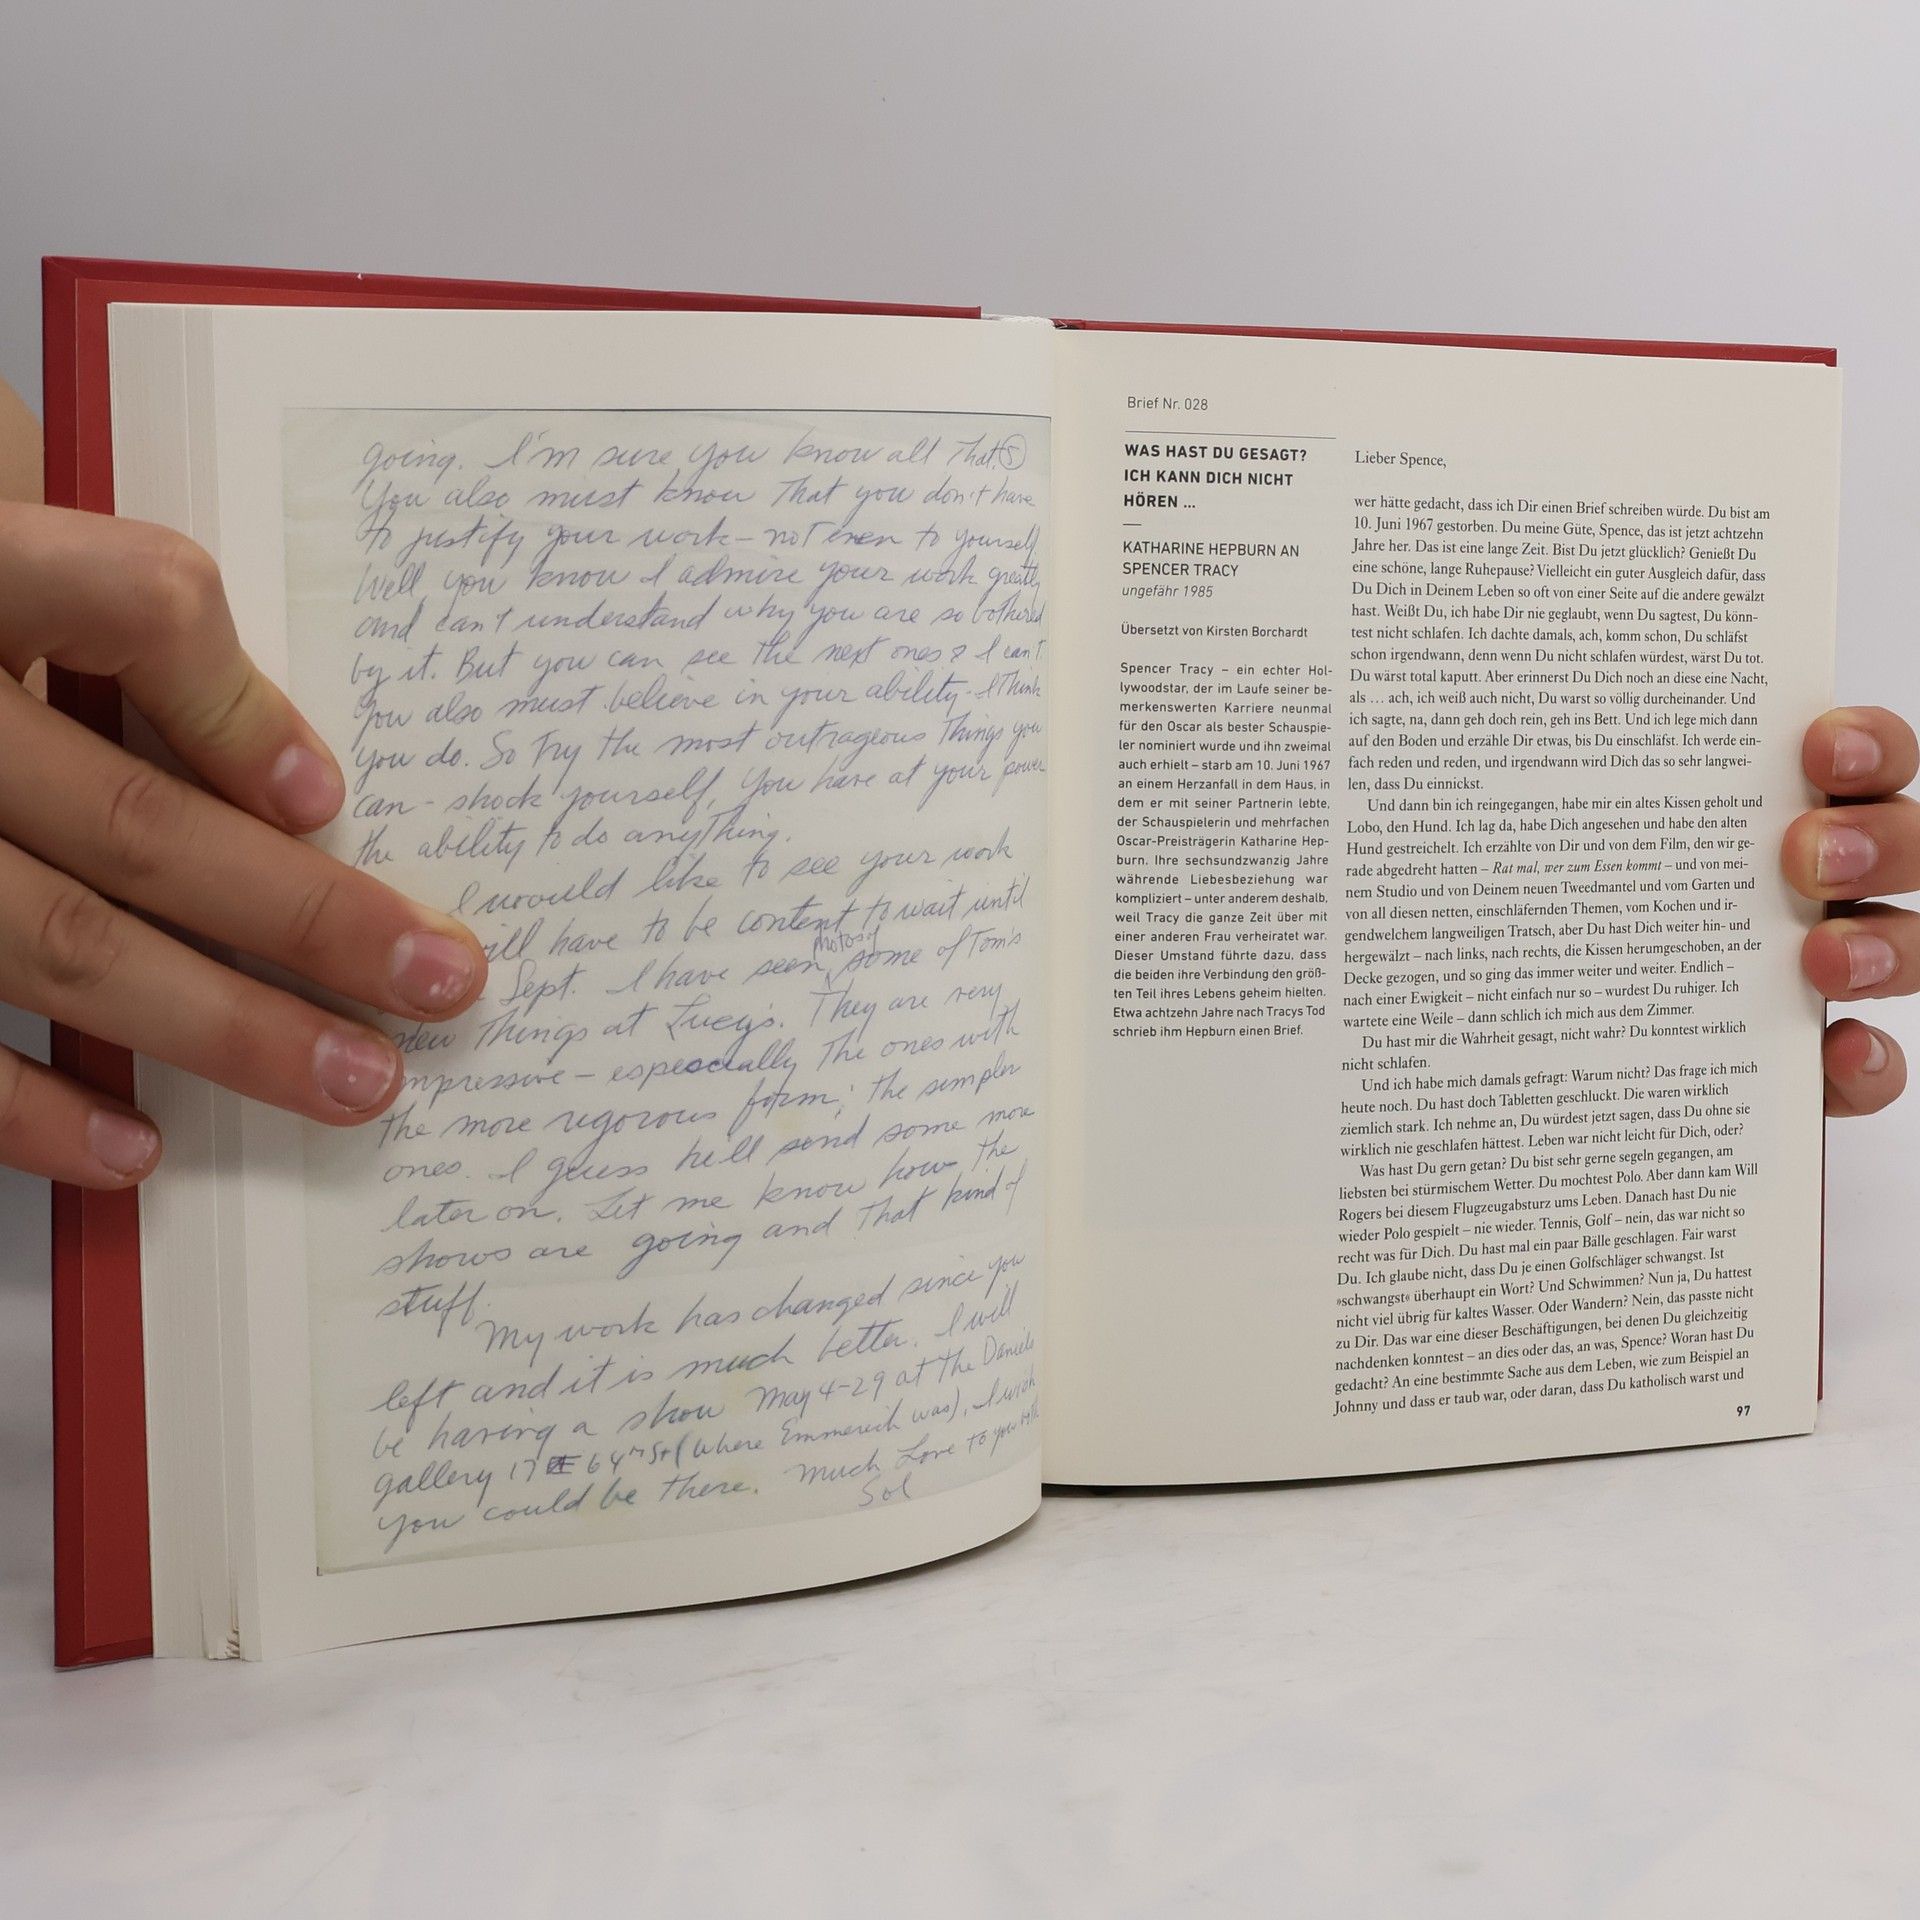 going. I'm sure you know all that. 5
You also must know that you don't have
to justify your work – not even to yourself.
Well, you know I admire your work greatly
and can't understand why you are so bothered
by it. But you can see the next ones & I can't.
You also must believe in your ability. I think
you do. So try the most outrageous things you
can – shock yourself. You have at your power
the ability to do anything.
I would like to see your work
will have to be content to wait until
Sept. I have seen photos of some of Tom's
new things at Lucy's. They are very
impressive – especially the ones with
the more rigorous form; the simpler
ones. I guess he'll send some more
later on. Let me know how the
shows are going and that kind of
stuff.
My work has changed since you
left and it is much better. I will
be having a show May 4-29 at the Daniels
gallery 17 E 64th St (where Emmerich was), I wish
you could be there. Much Love to you both.
Sol
Brief Nr. 028
WAS HAST DU GESAGT?
ICH KANN DICH NICHT
HÖREN ...
KATHARINE HEPBURN AN
SPENCER TRACY
ungefähr 1985
Übersetzt von Kirsten Borchardt
Spencer Tracy – ein echter Hol-
lywoodstar, der im Laufe seiner be-
merkenswerten Karriere neunmal
für den Oscar als bester Schauspie-
ler nominiert wurde und ihn zweimal
auch erhielt – starb am 10. Juni 1967
an einem Herzanfall in dem Haus, in
dem er mit seiner Partnerin lebte,
der Schauspielerin und mehrfachen
Oscar-Preisträgerin Katharine Hep-
burn. Ihre sechsundzwanzig Jahre
währende Liebesbeziehung war
kompliziert – unter anderem deshalb,
weil Tracy die ganze Zeit über mit
einer anderen Frau verheiratet war.
Dieser Umstand führte dazu, dass
die beiden ihre Verbindung den größ-
ten Teil ihres Lebens geheim hielten.
Etwa achtzehn Jahre nach Tracys Tod
schrieb ihm Hepburn einen Brief.
Lieber Spence,
wer hätte gedacht, dass ich Dir einen Brief schreiben würde. Du bist am
10. Juni 1967 gestorben. Du meine Güte, Spence, das ist jetzt achtzehn
Jahre her. Das ist eine lange Zeit. Bist Du jetzt glücklich? Genießt Du
eine schöne, lange Ruhepause? Vielleicht ein guter Ausgleich dafür, dass
Du Dich in Deinem Leben so oft von einer Seite auf die andere gewälzt
hast. Weißt Du, ich habe Dir nie geglaubt, wenn Du sagtest, Du könn-
test nicht schlafen. Ich dachte damals, ach, komm schon, Du schläfst
schon irgendwann, denn wenn Du nicht schlafen würdest, wärst Du tot.
Du wärst total kaputt. Aber erinnerst Du Dich noch an diese eine Nacht,
als … ach, ich weiß auch nicht, Du warst so völlig durcheinander. Und
ich sagte, na, dann geh doch rein, geh ins Bett. Und ich lege mich dann
auf den Boden und erzähle Dir etwas, bis Du einschläfst. Ich werde ein-
fach reden und reden, und irgendwann wird Dich das so sehr langwei-
len, dass Du einnickst.
Und dann bin ich reingegangen, habe mir ein altes Kissen geholt und
Lobo, den Hund. Ich lag da, habe Dich angesehen und habe den alten
Hund gestreichelt. Ich erzählte von Dir und von dem Film, den wir ge-
rade abgedreht hatten – Rat mal, wer zum Essen kommt – und von mei-
nem Studio und von Deinem neuen Tweedmantel und vom Garten und
von all diesen netten, einschläfernden Themen, vom Kochen und ir-
gendwelchem langweiligen Tratsch, aber Du hast Dich weiter hin- und
hergewälzt – nach links, nach rechts, die Kissen herumgeschoben, an der
Decke gezogen, und so ging das immer weiter und weiter. Endlich –
nach einer Ewigkeit – nicht einfach nur so – wurdest Du ruhiger. Ich
wartete eine Weile – dann schlich ich mich aus dem Zimmer.
Du hast mir die Wahrheit gesagt, nicht wahr? Du konntest wirklich
nicht schlafen.
Und ich habe mich damals gefragt: Warum nicht? Das frage ich mich
heute noch. Du hast doch Tabletten geschluckt. Die waren wirklich
ziemlich stark. Ich nehme an, Du würdest jetzt sagen, dass Du ohne sie
wirklich nie geschlafen hättest. Leben war nicht leicht für Dich, oder?
Was hast Du gern getan? Du bist sehr gerne segeln gegangen, am
liebsten bei stürmischem Wetter. Du mochtest Polo. Aber dann kam Will
Rogers bei diesem Flugzeugabsturz ums Leben. Danach hast Du nie
wieder Polo gespielt – nie wieder. Tennis, Golf – nein, das war nicht so
recht was für Dich. Du hast mal ein paar Bälle geschlagen. Fair warst
Du. Ich glaube nicht, dass Du je einen Golfschläger schwangst. Ist
»schwangst« überhaupt ein Wort? Und Schwimmen? Nun ja, Du hattest
nicht viel übrig für kaltes Wasser. Oder Wandern? Nein, das passte nicht
zu Dir. Das war eine dieser Beschäftigungen, bei denen Du gleichzeitig
nachdenken konntest – an dies oder das, an was, Spence? Woran hast Du
gedacht? An eine bestimmte Sache aus dem Leben, wie zum Beispiel an
Johnny und dass er taub war, oder daran, dass Du katholisch warst und
97